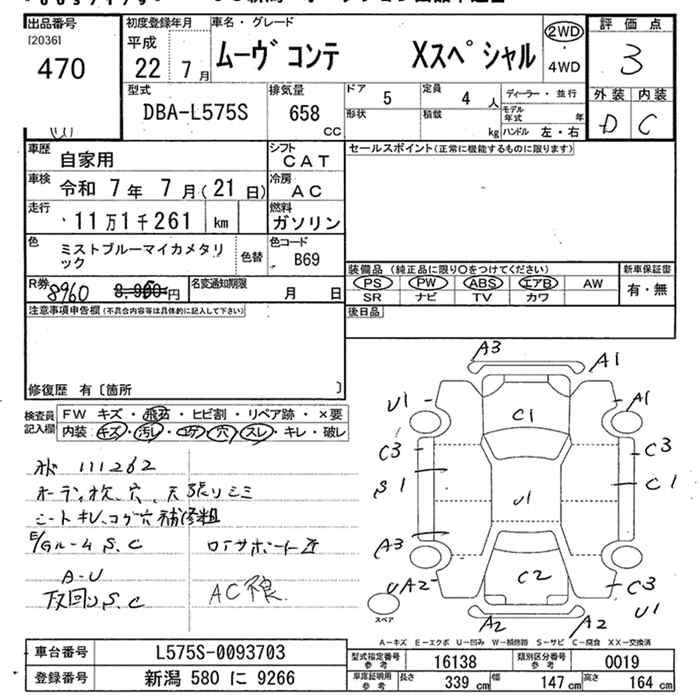 出品番号 初度登録年月 車名・グレード 評価点
120361 平成 ムーヴ コンテ Xスペシャル 2WD 3
470 22年 7月 ・ 4WD
型式 排気量 ドア 5 定員 4人 ディーラー・並行 外装 内装
DBA-L575S 658 CC 形状 積載 kg モデル年式 年 ハンドル 左・右 D C
車歴 自家用 シフト CAT セールスポイント(正常に機能するものに限ります)
車検 令和 7年 7月(21日) 冷房 AC
走行 11万1千261 km 燃料 ガソリン
色 ミストブルーマイカメタリック 色替 色コード B69
装備品 (純正品に限り○をつけてください) 新車保証書
R券 8960 8,960円 名変通知期限 月 日 PS PW ABS エアB AW 有・無
SR ナビ TV カワ
注意事項申告欄(不具合内容等は具体的に記入して下さい) 後日品
修復歴 有〔箇所 〕
検査員記入欄 FW キズ・飛石・ヒビ割・リペア跡・×要
内装 キズ・汚レ・コゲ・穴・スレ・キレ・破レ
111262
天張りシミ
シートキレ、コゲ穴補修粗
E/Gルーム S.C ロアサポートサビ
A-U
下回りS.C AC不良
A3 A1
U1 C1 A1
C3 C3
S1 U1 C1
A3
UA2 C2 C3
U1
A2 A2
スペア
A-キズ E-エクボ U-凹み W-補修跡 S-サビ C-腐食 XX-交換済
車台番号 L575S-0093703 型式指定番号 参考 16138 類別区分番号 参考 0019
登録番号 新潟 580 に 9266 車庫証明用 参考 長さ 339 cm 幅 147 cm 高さ 164 cm